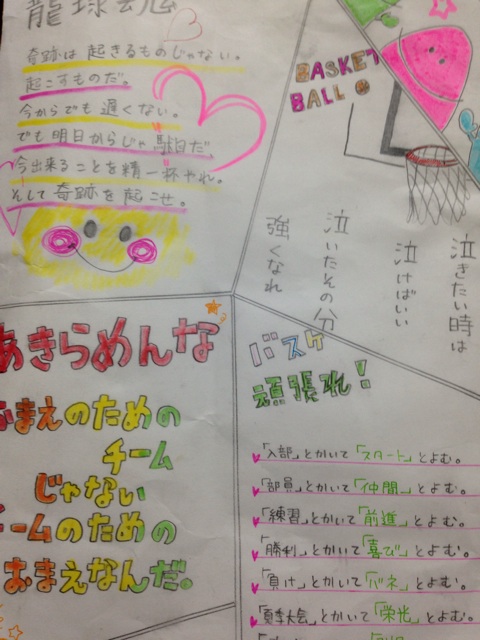 籠球魂
奇跡は起きるものじゃない。
起こすものだ。
今からでも遅くない。
でも明日からじゃ駄目だ。
今出来ることを精一杯やれ。
そして奇跡を起こせ。
BASKET
BALL
泣きたい時は
泣けばいい
泣いたその分
強くなれ
あきらめんな
おまえのための
チーム
じゃない
チームのための
おまえなんだ。
バスケ
頑張れ!
「入部」とかいて「スタート」とよむ。
「部員」とかいて「仲間」とよむ。
「練習」とかいて「前進」とよむ。
「勝利」とかいて「喜び」とよむ。
「負け」とかいて「バネ」とよむ。
「夏季大会」とかいて「栄光」とよむ。